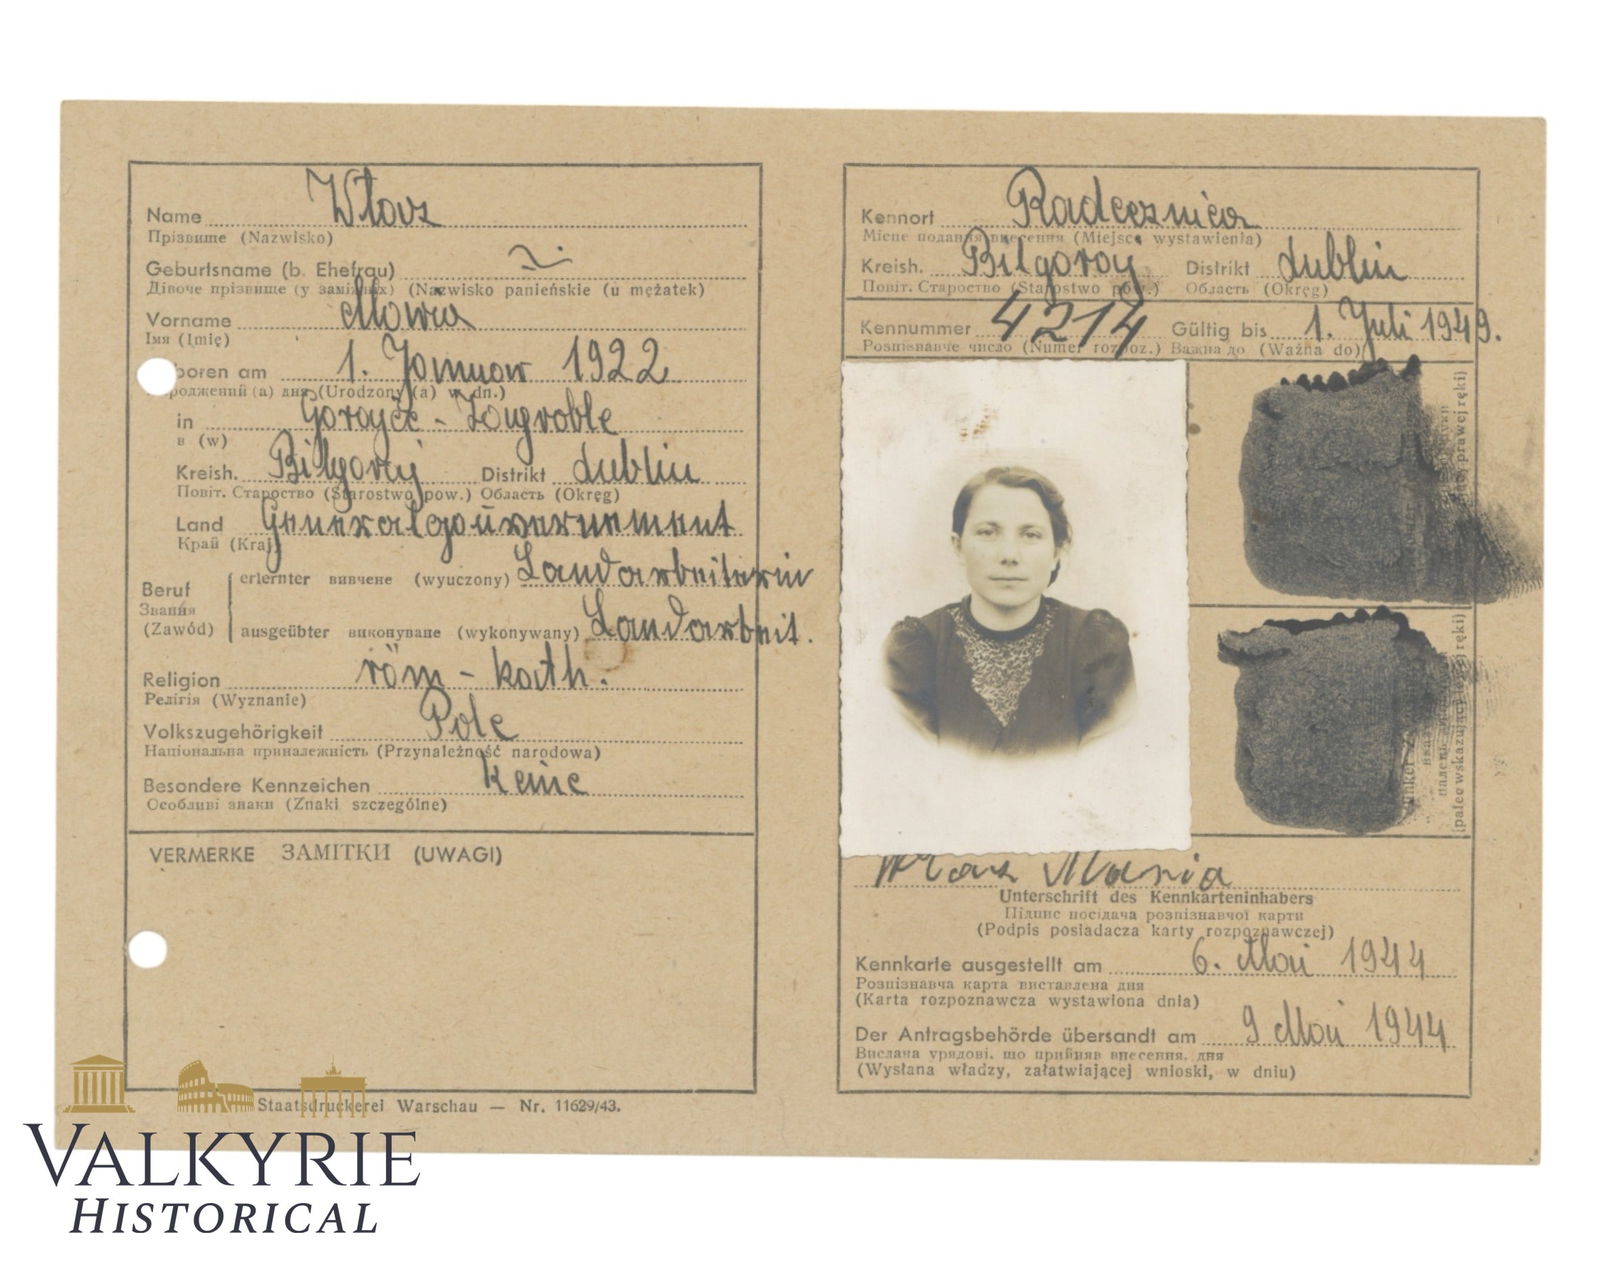 Name Wlaz
Прізвище (Nazwisko)
Geburtsname (b. Ehefrau)
Дівоче прізвище (у заміжніх) (Nazwisko panieńskie (u mężatek)
Vorname Maria
Імя (Imię)
boren am 1. Januar 1922
роджений (а) дня (Urodzony (a) w dn.)
in Gorajec - Zagroble
в (w)
Kreish. Bilgoraj Distrikt Lublin
Повіт. Староство (Starostwo pow.) Область (Okręg)
Land Generalgouvernement
Край (Kraj)
Beruf erlernter вивчене (wyuczony) Landarbeiterin
Звання
(Zawód) ausgeübter виконуване (wykonywany) Landarbeit.
Religion röm - kath.
Релігія (Wyznanie)
Volkszugehörigkeit Pole
Національна приналежність (Przynależność narodowa)
Besondere Kennzeichen keine
Особливі знаки (Znaki szczególne)
VERMERKE ЗАМІТКИ (UWAGI)
Staatsdruckerei Warschau — Nr. 11629/43.
Kennort Radecznica
Місце подання внесення (Miejsce wystawienia)
Kreish. Bilgoraj Distrikt Lublin
Повіт. Староство (Starostwo pow.) Область (Okręg)
Kennummer 4214 Gültig bis 1. Juli 1949.
Розпізнавче число (Numer rozpoz.) Важна до (Ważna do)
prawej ręki)
(palec wskazujący ręki)
Wlaz Maria
Unterschrift des Kennkarteninhabers
Підпис посідача розпізнавчої карти
(Podpis posiadacza karty rozpoznawczej)
Kennkarte ausgestellt am 6. Mai 1944
Розпізнавча карта виставлена дня
(Karta rozpoznawcza wystawiona dnia)
Der Antragsbehörde übersandt am 9 Mai 1944
Вислана урядові, що прийняв внесення, дня
(Wysłana władzy, załatwiającej wnioski, w dniu)
VALKYRIE
HISTORICAL